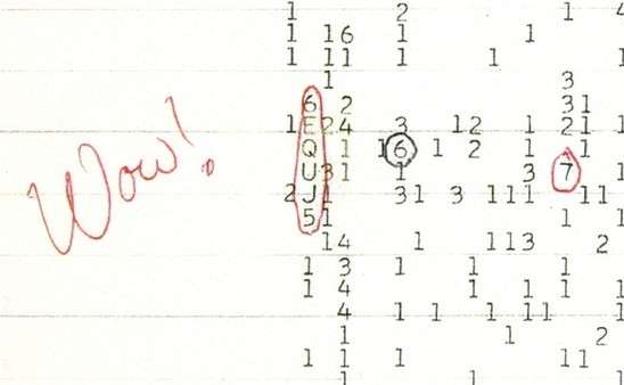 1 2 1 4
1 16 1 1
1 11 1 1 1
1 3
6 2 31
1 E 24 3 12 1 21 1
Q 1 16 1 2 1 1
U 31 1 3 7 1
Wow!
2 J 1 31 3 111 11
5 1 1 1
14 1 113 2
1 3 1 1 1
1 4 1 1 1 1
4 1 1 1 11 1
1 1 2
1 1 1 11
1 1 1